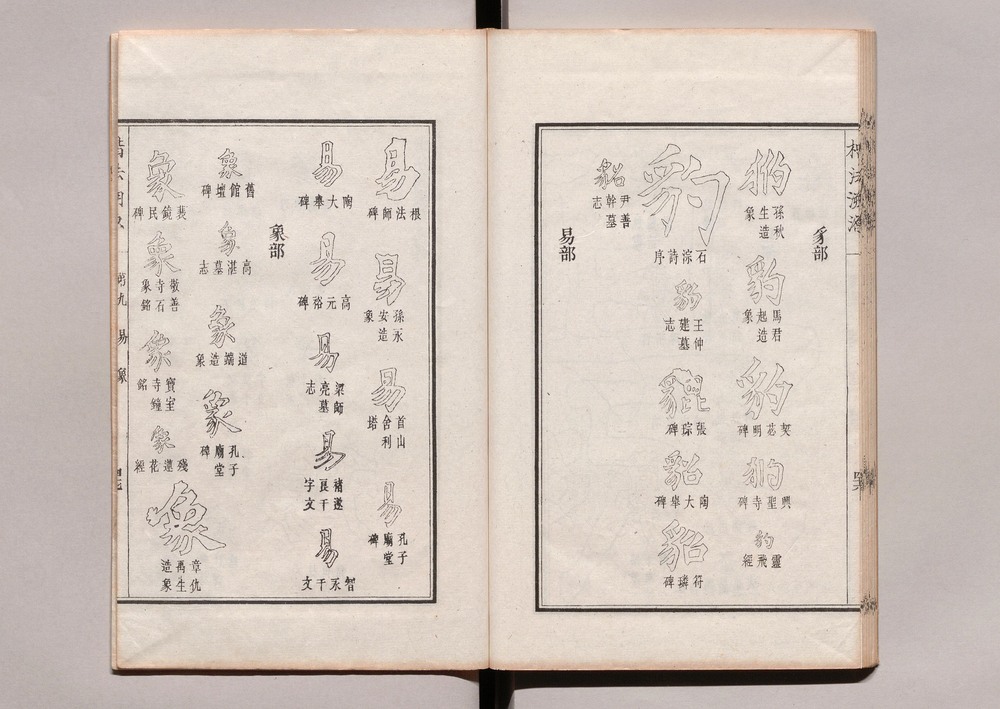 豸部
豹 孫秋生造象
豹 馬君起造象
豹 契苾明碑
豹 興聖寺碑
豹 靈飛經
豹 石淙詩序
豹 王仲建墓志
貔 張琮碑
貂 陶大舉碑
貂 符璘碑
尹善幹墓志
易部
易 根法師碑
易 孫永安造象
易 首山舍利塔
易 孔子廟堂碑
易 陶大舉碑
易 高元裕碑
易 梁師亮墓志
易 褚遂良千字文
易 智永千文
象部
象 舊館壇碑
象 高湛墓志
象 道端造象
象 孔子廟堂碑
象 裴鏡民碑
象 敬善寺石象銘
象 寶室寺鐘銘
象 殘蓮花經
象 章仇禹生造象
第九 易 象